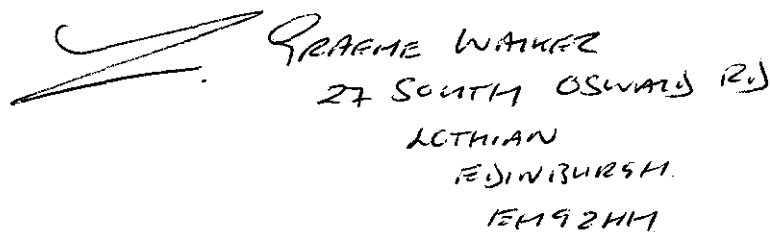 GRAEME WALKER
27 SOUTH OSWALD RD
LOTHIAN
EDINBURGH.
EH9 2HH